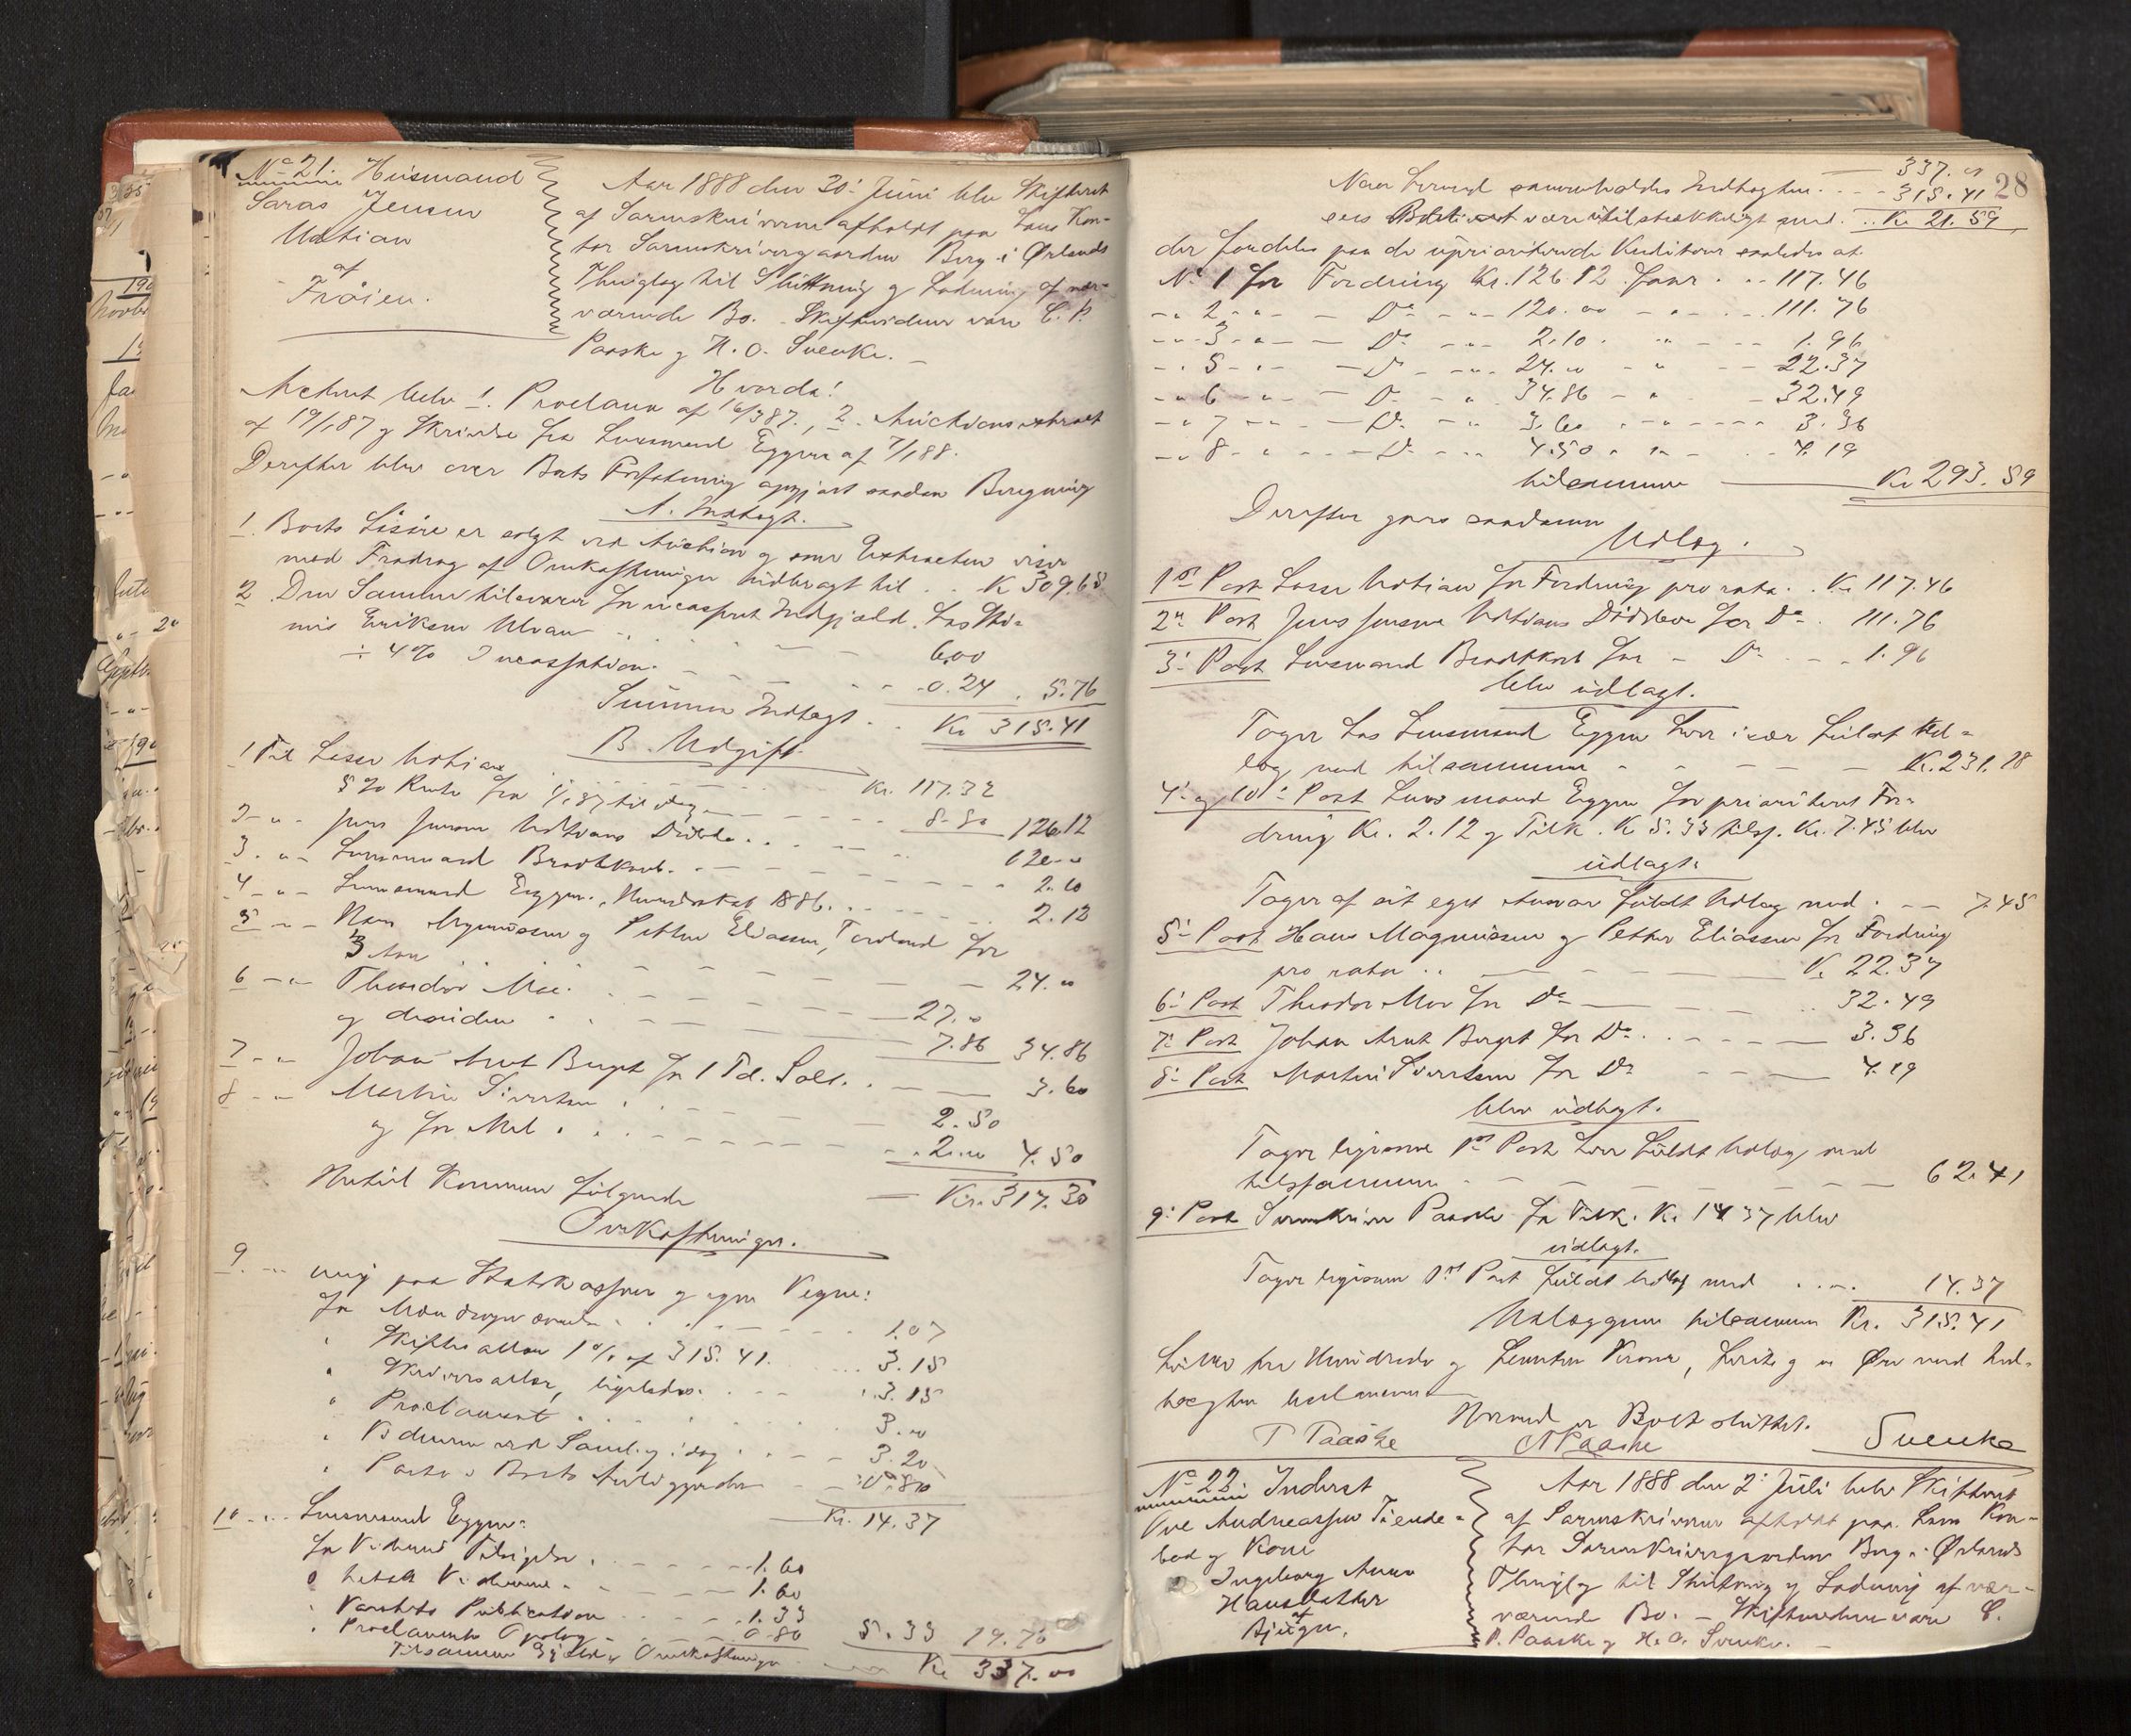 No 21. Huusmand
Jensen
af
Frøien.
Aar 1888 den 30. Juni blev Skifteret
af Sorenskriveren afholdt paa hans Kon-
tor Sorenskrivergaarden Berg i Ørlands
Thinglag til Slutning og Lodning af nær-
værende Bo. Skiftevidner vare C. P.
Paaske og H. O. Svenke.
Hvorda!
Acteret blev 1. Proclama af 16/387., 2. Auctionsextract
af 19/187 og Skrivelse fra Lensmand Eggen af 7/188.
Derefter blev over Boets Forfatning opgjort saadan Beregning
A. Indtægt.
1. Boets Løsøre er solgt ved Auction og som Extracten viser
med Fradrag af Omkostninger udbragt til . . K 309.65
2 Den Samme tilsvarer for Indgjæld. hos
Eriksen
6.00
÷ 4% Incassation. 0.24 . 5.76
Summa Indtægt . . Kr. 315.41
B. Udgift
1 Til Lasse Kr. 117.32
5% Rente fra 1/187 til Dag 8.80 126.12
2 - " - Jens Jensen Dødsbo. 120.00
3. " - Lensmand Brodtkorb. 2.10
4 - " - Lensmand Eggen. 1886. 2.12
5 - " - Hans Magnussen og Petter Eliassen, for
3 Aar 24.00
6 - " - Theodor Moe. 27.00
og desuden 7.86 34.86
7 - " - Johan Arnt Berget for 1 Td. Salt. 3.60
8 - " - Martin Sivertsen 2.50
og for Mel . 2.00 4.50
Hertil kommer følgende Kr. 317.30
Omkostninger.
9. - " - mig paa Statskassens og egne Vegne:
for 1.07
" Skifteattest 1% af 315.41. 3.15
" Skriversalær, ligeledes. 3.15
" Proclamaet 3.00
" Vidnerne ved Saml. og idag 3.20
" Porto i Boets Anliggender 0.80
Kr. 14.37
10 - " - Lensmand Eggen:
for Vidners Tilsigelse. 1.60
" 1.60
" Varslets Publication 1.33
" Proclamets Oplæsg. 0.80 5.33 19.70
Tilsammen Gjæld og Omkostninger Kr 337.00
28
337.00
Naar hermed sammenholdes Indtægten 315.41
sees Boet at være utilstrækkeligt med . . . Kr. 21.59
der fordeles paa de upriariterede Kreditorer saaledes at
No 1 for Fordring Kr. 126.12 faar . . . 117.46
- " 2 - " - Do - " - 120.00 - " - 111.76
- " 3 - " - Do - " - 2.10 . " - 1.96
- " 5 - " - Do - " - 24.00 - " - 22.37
- " 6 - " - Do - " - 34.86 - " - 32.49
- " 7 - " - Do - " - 3.60 - " - 3.36
- " 8 - " - Do - " - 4.50 - " - 4.19
tilsammen Kr 293.59
Derefter gives saadanne
Udlæg.
1ste Post Lasse for Fordring pro rata . . Kr. 117.46
2n Post Jens Jensen Dødsbo for Do . 111.76
3: Post Lensmand Brodtkorb for - Do - 1.96
blev udlagt.
Tager hos Lensmand Eggen hver især fuldt Ud-
læg med tilsammen Kr. 231.18
4: og 10: Post Lensmand Eggen for prioriteret For-
dring Kr. 2.12 og Tilk. K 5.33 tils. Kr. 7.45 blev
udlagt.
Tager af sit eget Ansvar fuldt Udlæg med . 7.45
5: Post Hans Magnussen og Petter Eliassen for Fordring
pro rata . . K. 22.37
6: Post Theodor Moe for Do 32.49
7: Post Johan Arnt Berget for Do . . 3.36
8: Post Martin Sivertsen for Do 4.19
blev udlagt.
Tager ligesom 1ste Post hver fuldt Udlæg med
tilsammen 62.41
9: Post Sorenskriver Paaske for Tilk. K. 14.37 blev
udlagt.
Tager ligesom 1ste Post fuldt Udlæg med . . . 14.37
Udlæggene tilsammen Kr. 315.41
hvilke tre Hundrede og femten Kroner, firti og en Øre med Ind-
tægten
Hermed er Boet sluttet.
P Paaske
Paaske
Svenke
No 22. Inderst
Ove Andreassen Tiende-
bod og Kone
Ingeborg Anna
Hansdatter
af
Bjugn.
Aar 1888 den 2: Juli blev Skifteret
af Sorenskriveren afholdt paa hans Kon-
tor Sorenskrivergaarden Berg i Ørlands
Thinglag til Slutning og Lodning af nær-
værende Bo. - Skiftevidner vare C.
P. Paaske og H. O. Svenke.